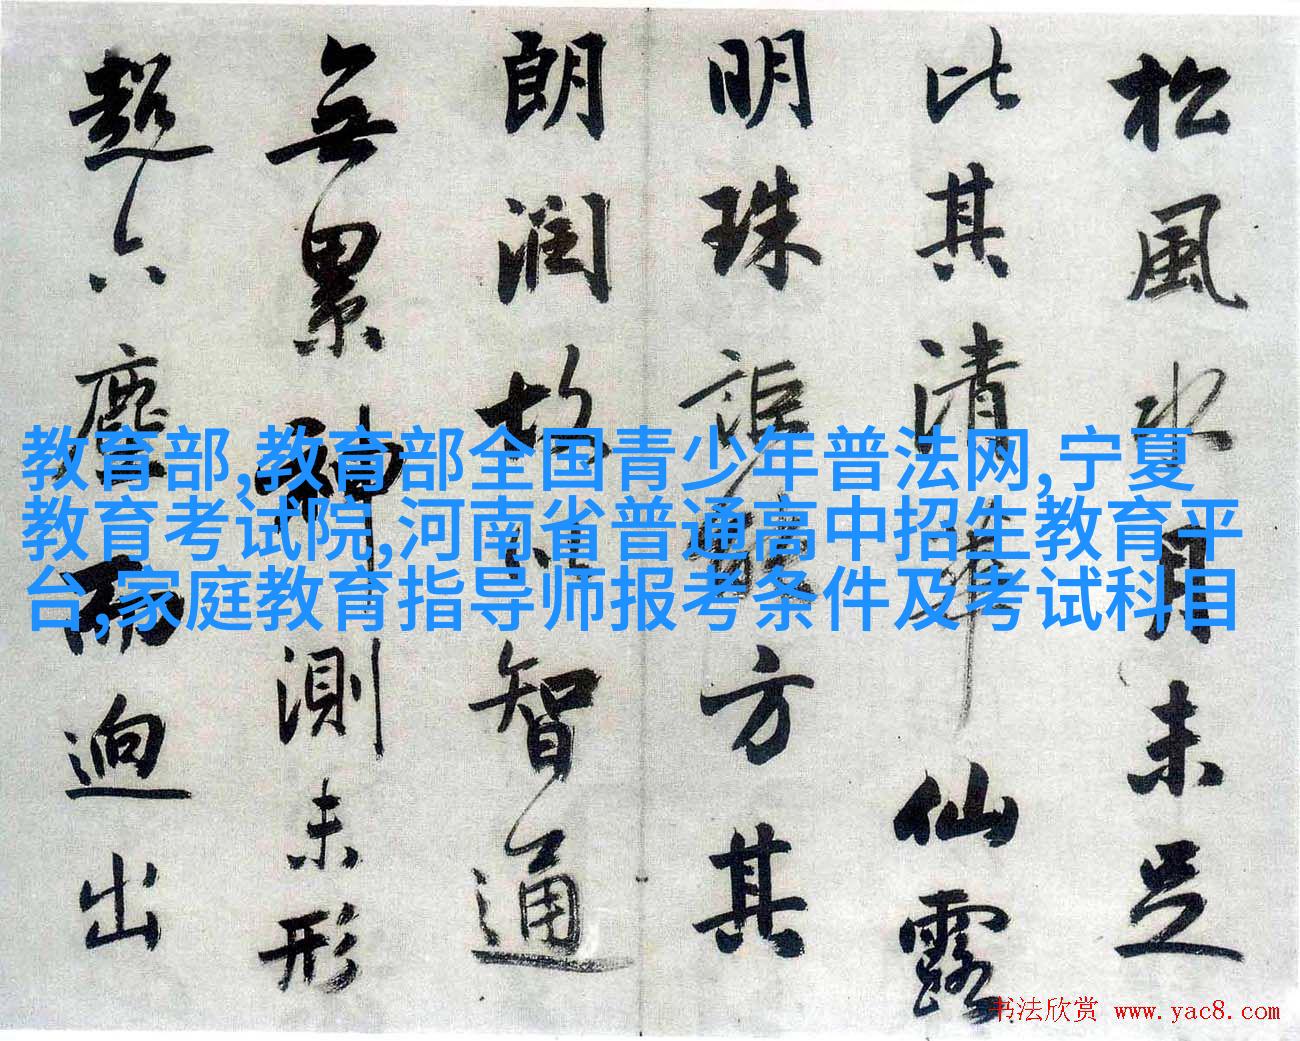 松風水月未足
比其清華仙露
明珠詎能方其
朗潤故以智通
無累神測未形
超六塵而迥出
教育部,教育部全国青少年普法网,宁夏
教育考试院,河南省普通高中招生教育平
台,家庭教育指导师报考条件及考试科目
书法欣赏 www.yac8.com